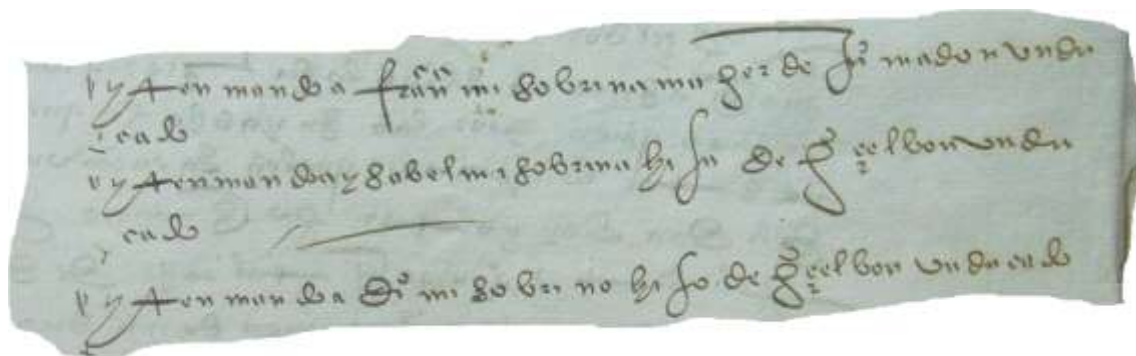 yten manda a franca mi sobrina muger de ju madon vn du
cado
yten manda a ysabel mi sobrina hija de g elbon vn du
cado
yten manda a di mi sobrino hijo de g elbon vn ducado